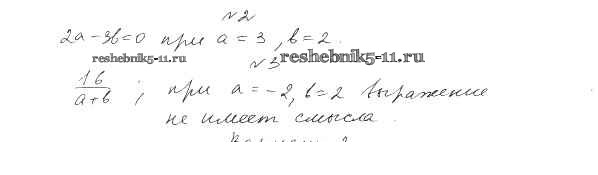 №2
2a - 3b = 0 при a = 3, b = 2.
reshebnik5-11.ru
reshebnik5-11.ru
№3
16/(a+b) ; при a = -2, b = 2 выражение
не имеет смысла.